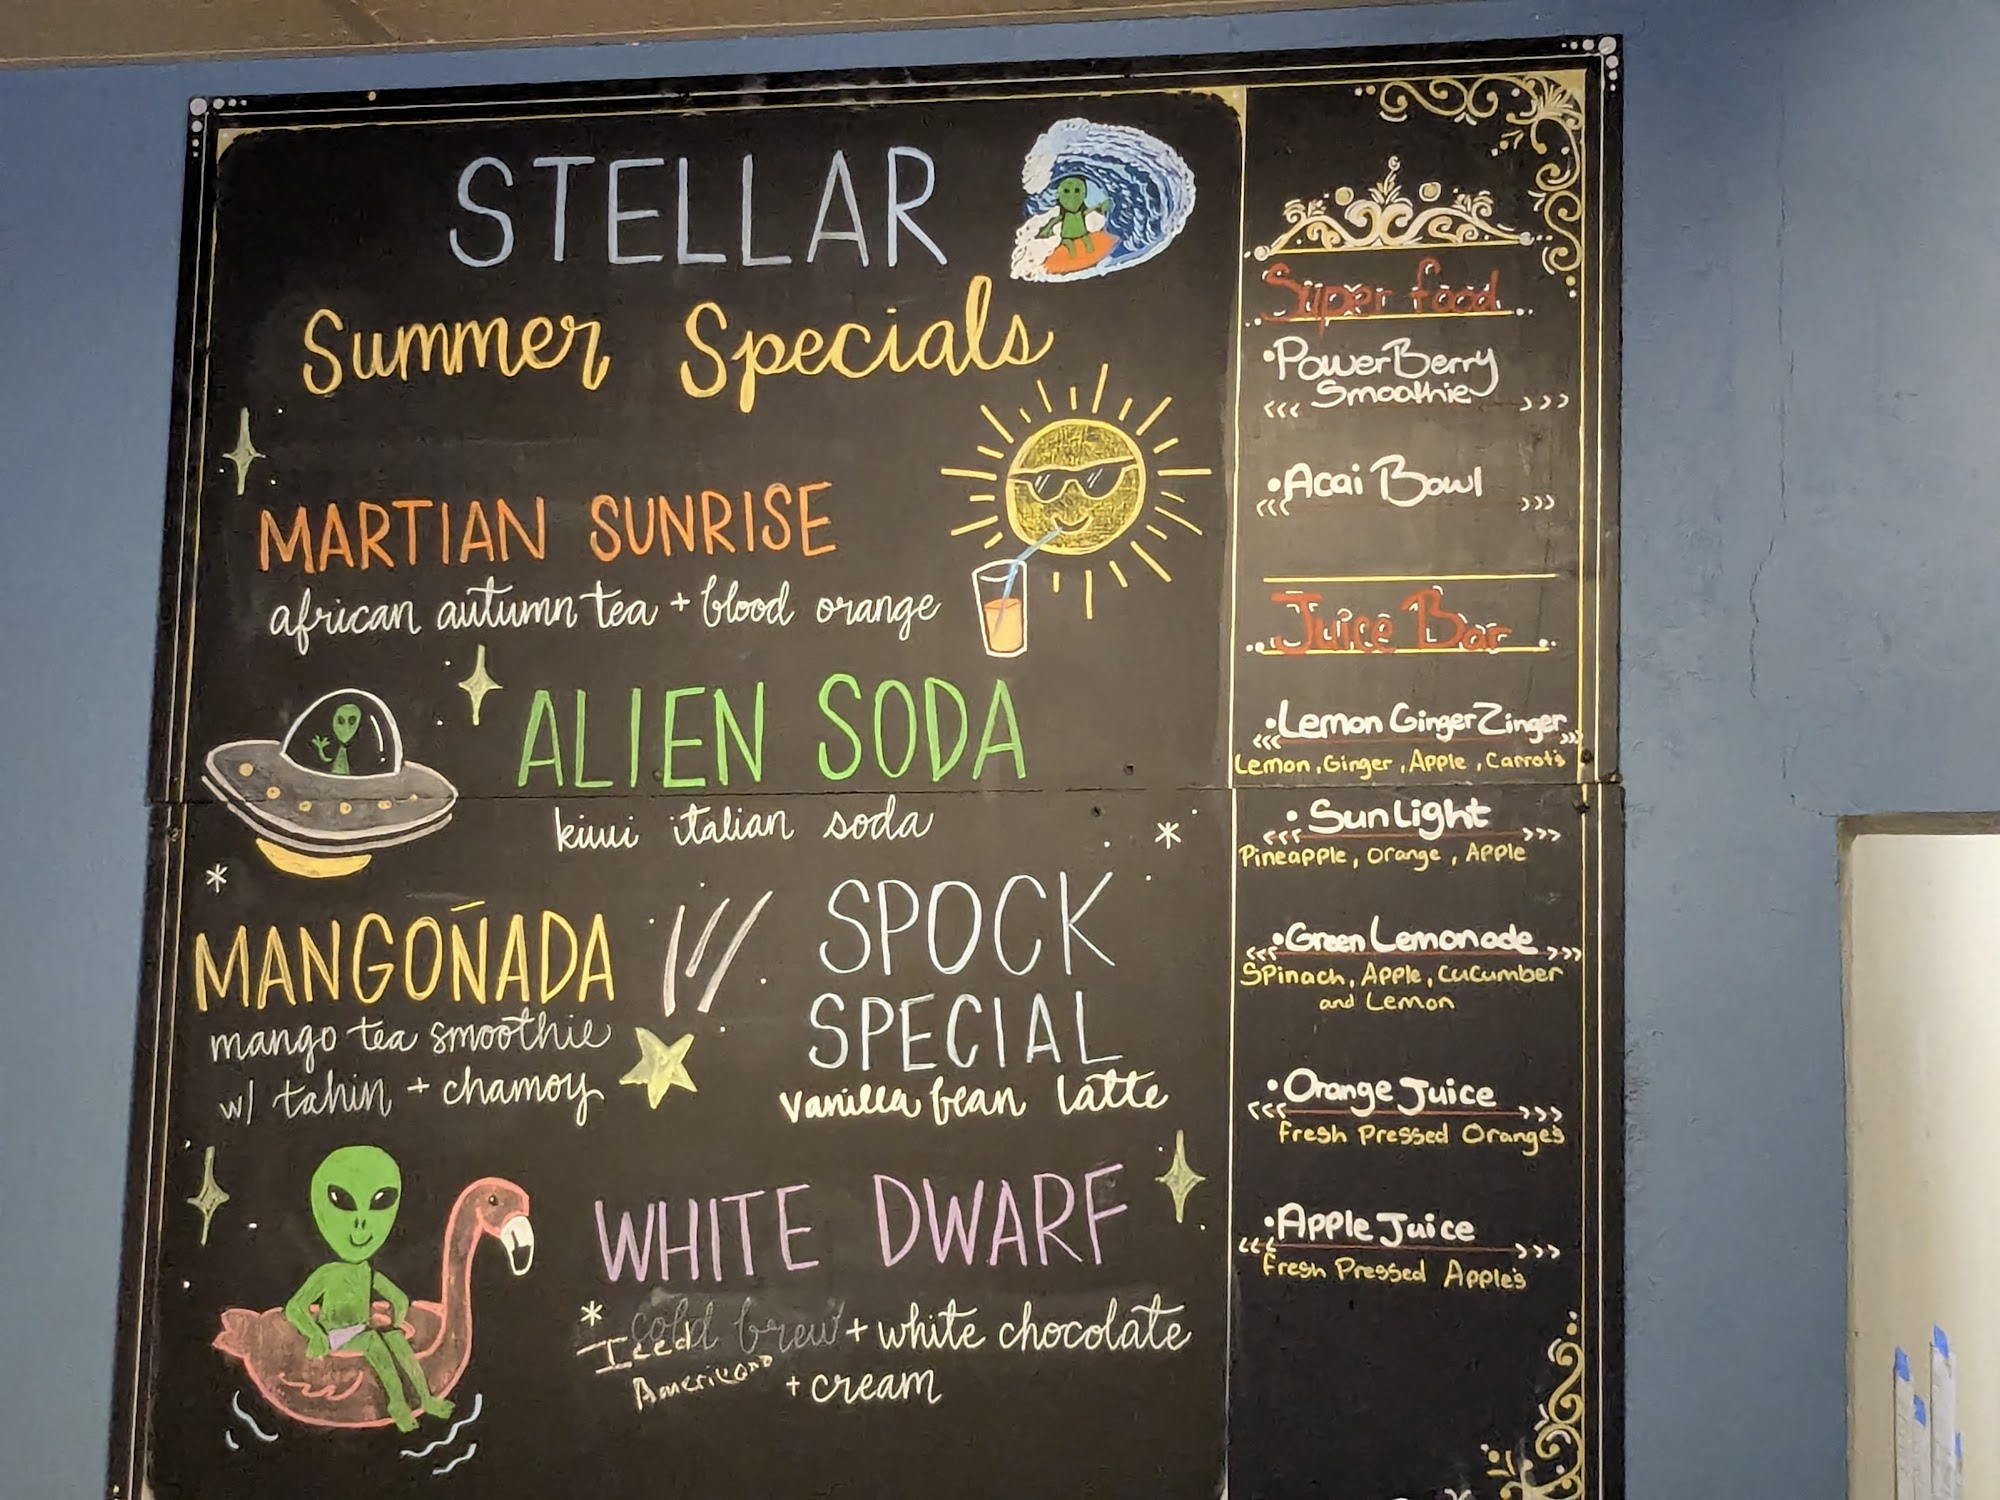 STELLAR
Summer Specials
MARTIAN SUNRISE
african autumn tea + blood orange
ALIEN SODA
kiwi italian soda
MANGOÑADA
mango tea smoothie
w/ tahin + chamoy
SPOCK
SPECIAL
vanilla bean latte
WHITE DWARF
* cold brew + white chocolate
Iced
Americano + cream
Super food
• PowerBerry
Smoothie
• Acai Bowl
Juice Bar
• Lemon Ginger Zinger
Lemon, Ginger, Apple, Carrots
• SunLight
Pineapple, Orange, Apple
• Green Lemonade
Spinach, Apple, Cucumber
and Lemon
• Orange Juice
Fresh Pressed Orange's
• Apple Juice
Fresh Pressed Apple's